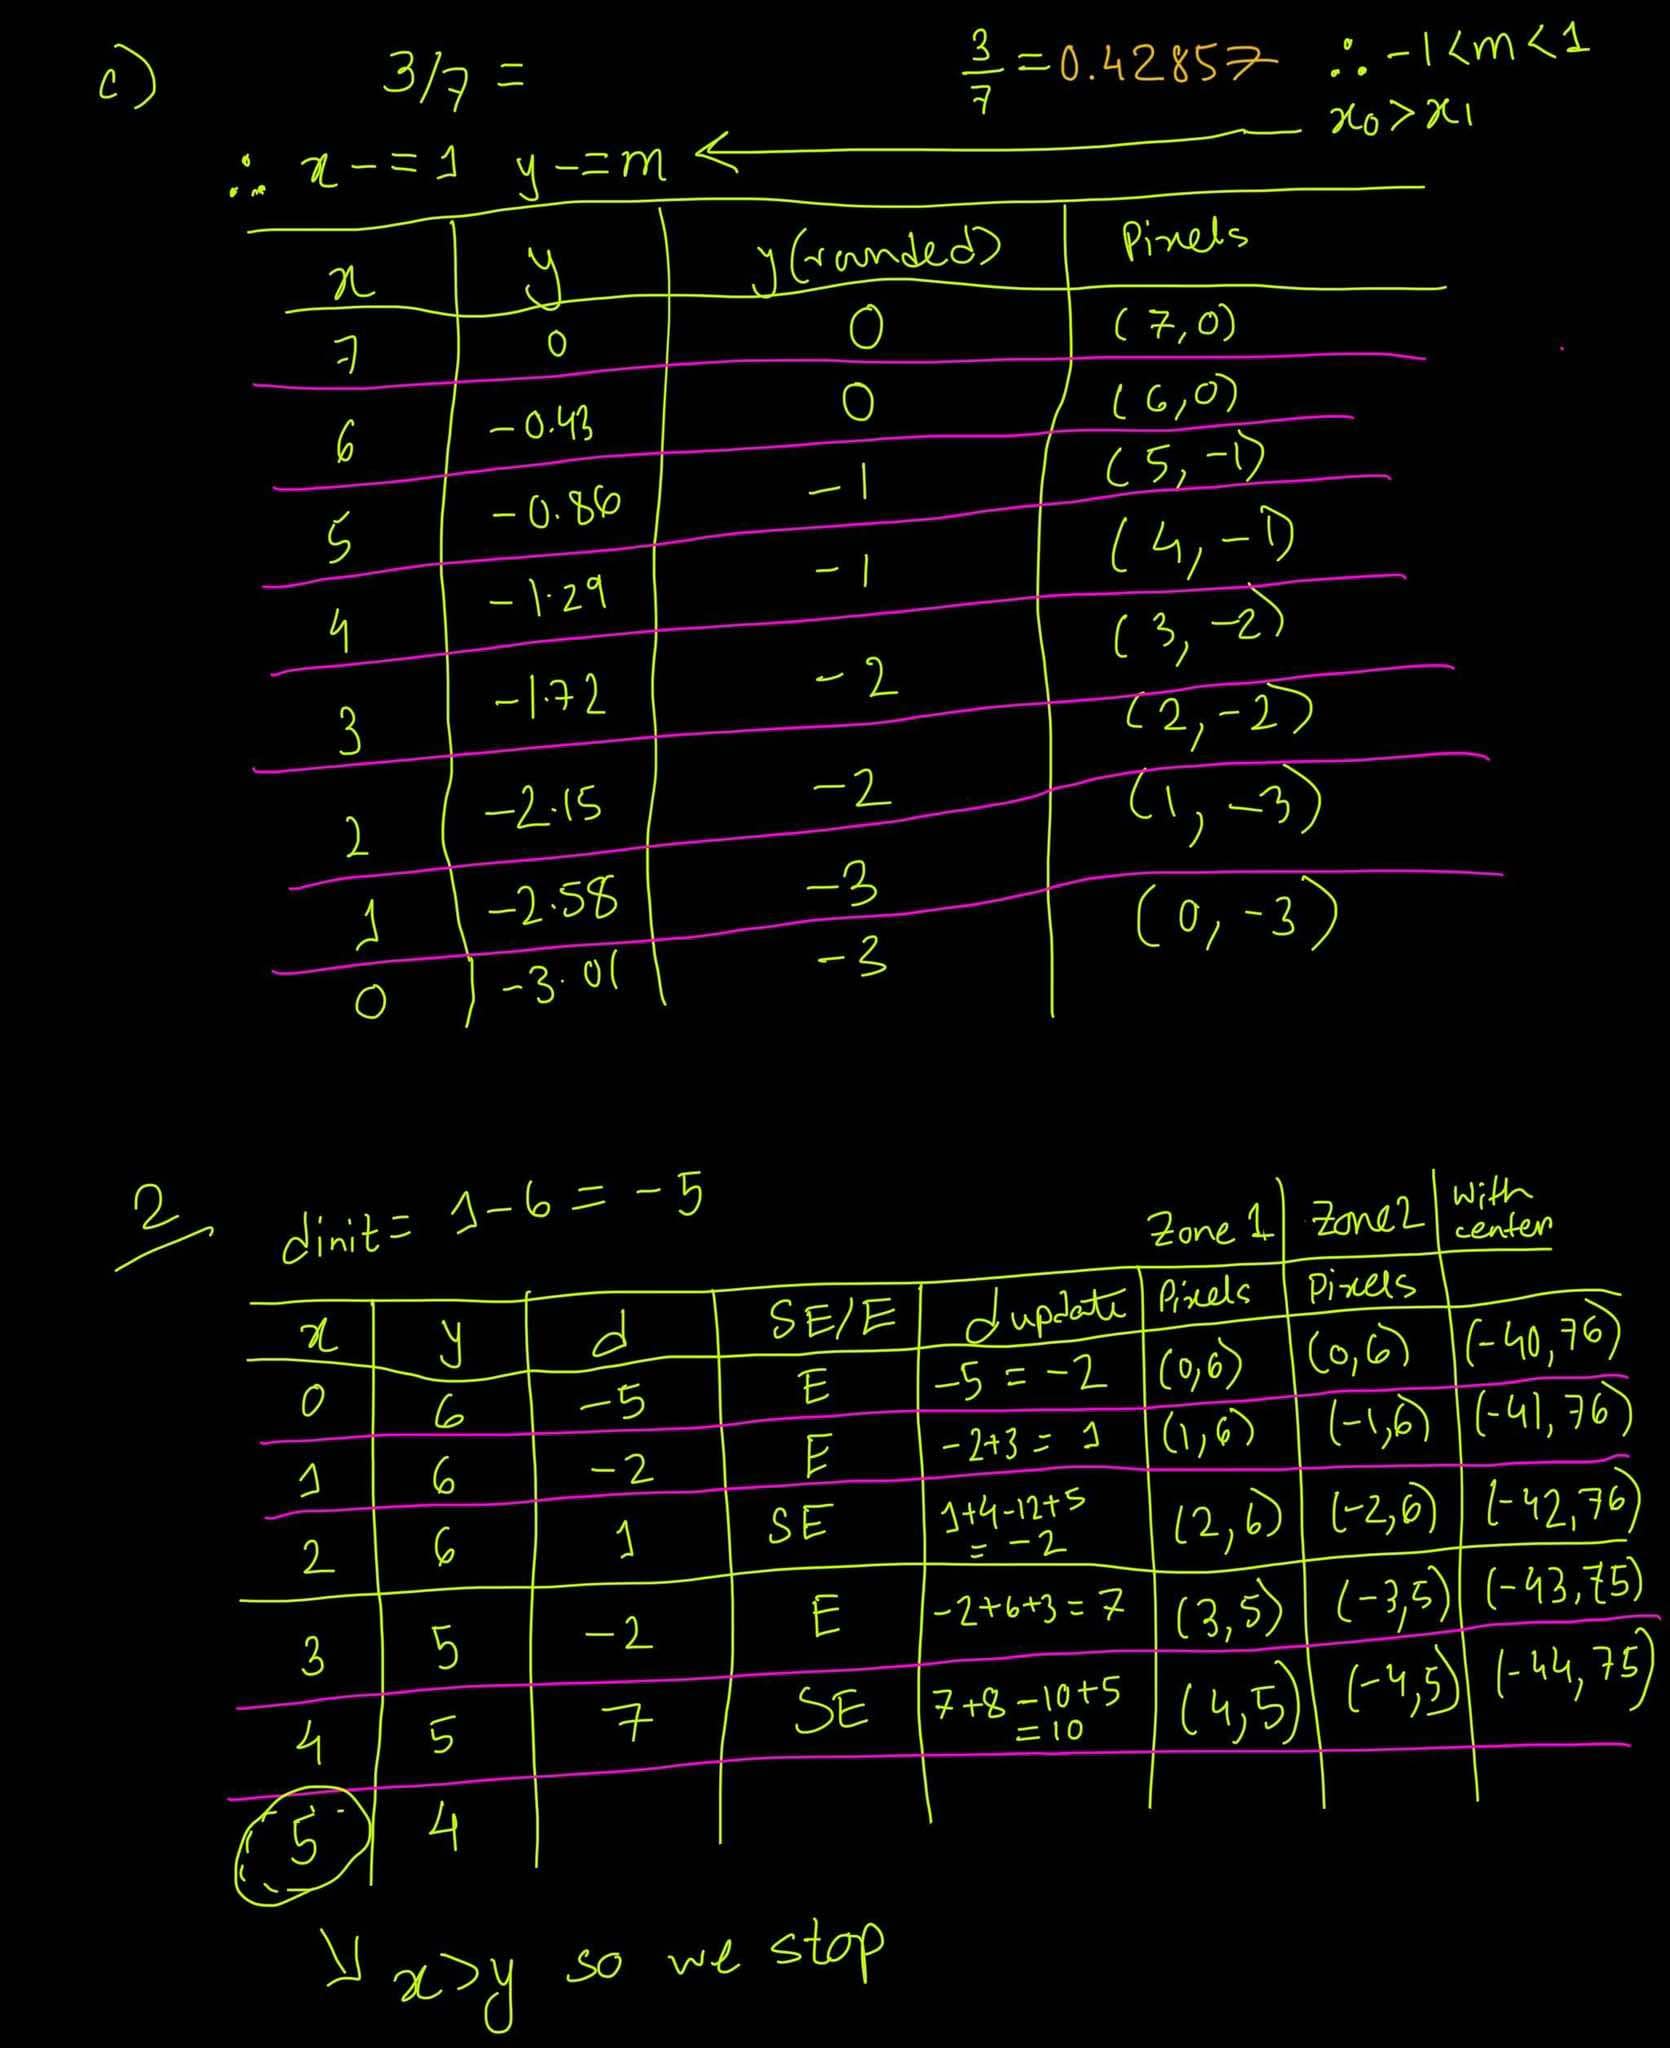 c) 3/7 = 3/7 = 0.42857 ∴ -1<m<1
x0 > x1
∴ x-=1 y-=m
x y y(rounded) Pixels
7 0 0 (7,0)
6 -0.43 0 (6,0)
5 -0.86 -1 (5,-1)
4 -1.29 -1 (4,-1)
3 -1.72 -2 (3,-2)
2 -2.15 -2 (2,-2)
1 -2.58 -3 (1,-3)
0 -3.01 -3 (0,-3)
2 dinit = 1-6 = -5
Zone 1 Zone2 with center
x y d SE/E d update Pixels Pixels
0 6 -5 E -5 = -2 (0,6) (0,6) (-40,76)
1 6 -2 E -2+3 = 1 (1,6) (-1,6) (-41,76)
2 6 1 SE 1+4-12+5 = -2 (2,6) (-2,6) (-42,76)
3 5 -2 E -2+6+3 = 7 (3,5) (-3,5) (-43,75)
4 5 7 SE 7+8-10+5 = 10 (4,5) (-4,5) (-44,75)
5 4
x>y so we stop